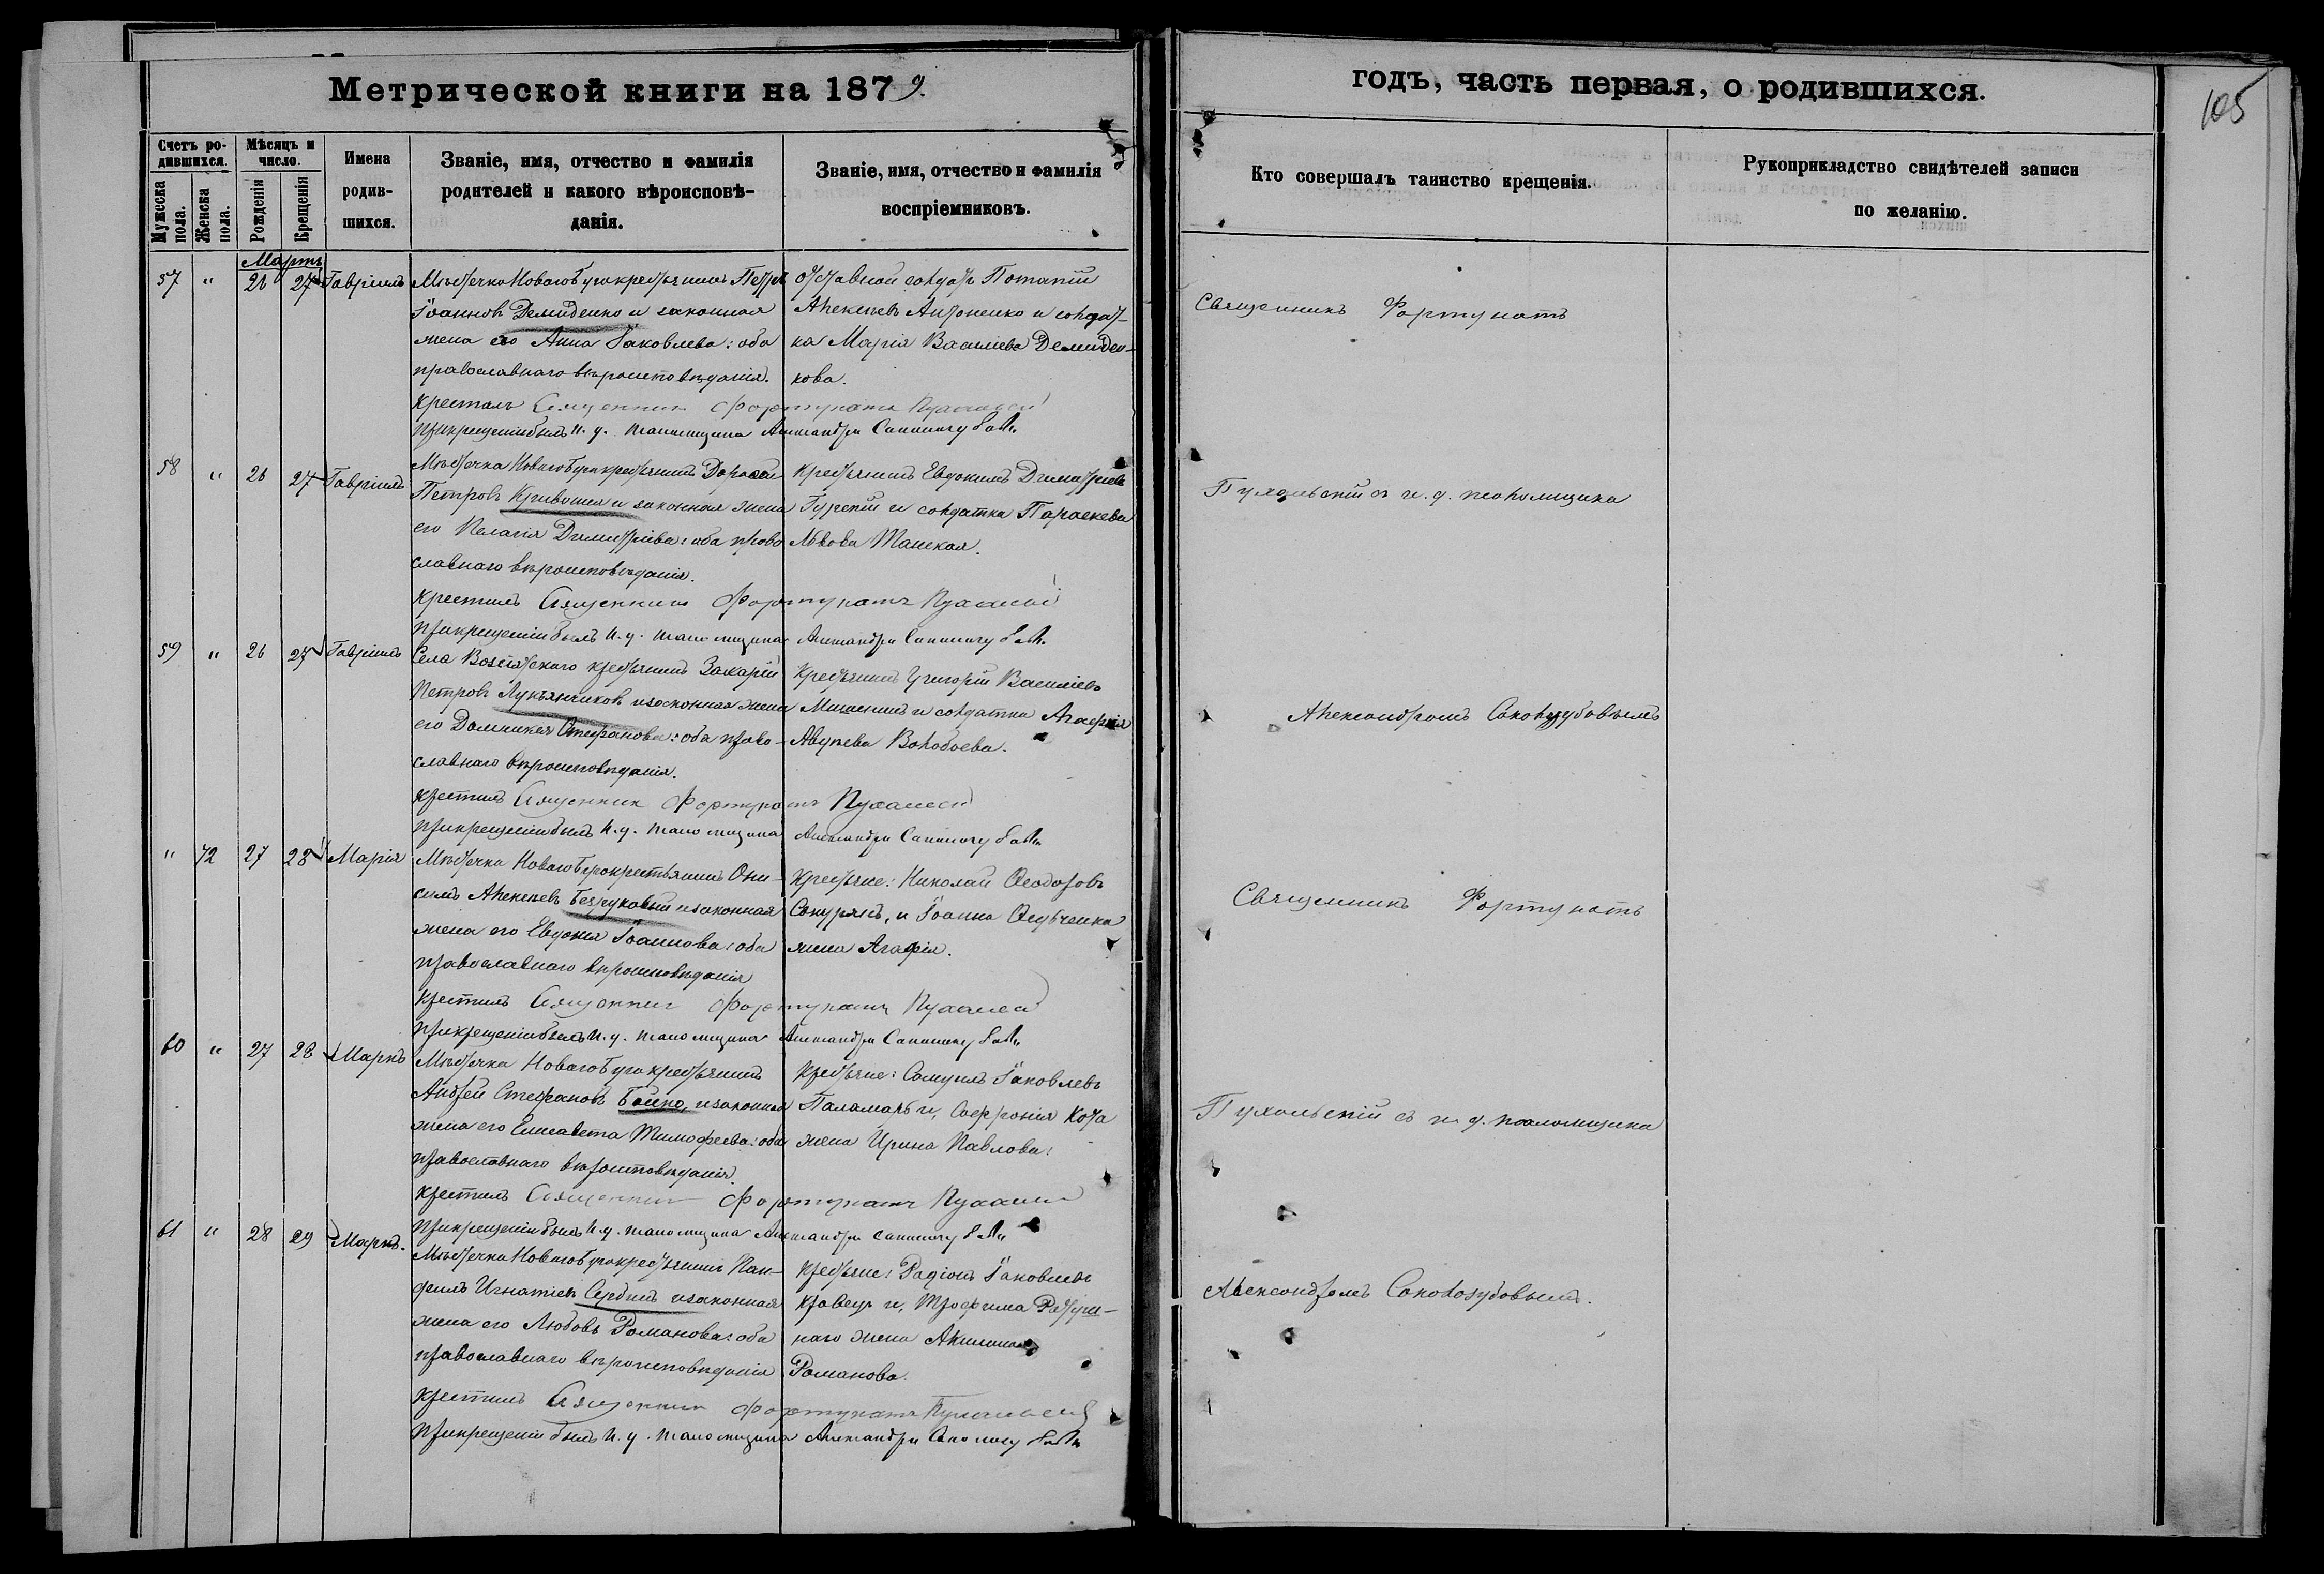 Метрической книги на 1879.
годъ, часть первая, о родившихся.
105
Счетъ ро-
дившихся.
Мужеска
пола.
Женска
пола.
Мѣсяцъ и
число.
Рожденія
Крещенія
Имена
родив-
шихся.
Званіе, имя, отчество и фамилія
родителей и какого вѣроисповѣ-
данія.
Званіе, имя, отчество и фамилія
воспріемниковъ.
Кто совершалъ таинство крещенія.
Рукоприкладство свидѣтелей записи
по желанію.
Мартъ
57 " 26 27 Гавріилъ
Мѣстечка Новаго Буга крестьянинъ Петръ
Іоанновъ Демиденко и законная
жена его Анна Іаковлева: оба
православнаго вѣроисповѣданія.
Отставной солдатъ Потапій
Алексѣевъ Антоненко и солдат-
ка Марія Васильева Демиден-
кова.
Крестилъ Священникъ Фортунатъ
При крещеніи былъ и. д. псаломщика
Священникъ Фортунатъ
58 " 26 27 Гавріилъ
Мѣстечка Новаго Буга крестьянинъ
Петровъ Кривошея и законная жена
его Пелагія Димитріева: оба право
славнаго вѣроисповѣданія.
Крестьянинъ Евдокимъ Димитріевъ
Гурскій и солдатка Параскева
Львова
Крестилъ Священникъ Фортунатъ
При крещеніи былъ и. д. псаломщика
Пухальскій съ и. д. псаломщика
59 " 26 27 Гавріилъ
Села крестьянинъ Захарій
Петровъ Лукьянчиковъ и законная жена
его Домникія Стефанова: оба право-
славнаго вѣроисповѣданія.
Крестьянинъ Григорій Васильевъ
и солдатка Агафія
Воробьева.
Крестилъ Священникъ Фортунатъ
При крещеніи былъ и. д. псаломщика
Александромъ Соколозубовымъ
" 42 27 28 Марія
Мѣстечка Новаго Буга крестьянинъ Они-
симъ Алексѣевъ Безруковый и законная
жена его Евдокія Іоаннова: оба
православнаго вѣроисповѣданія
Крестьяне: Николай Ѳеодоровъ
и Іоанна
жена Агафія.
Крестилъ Священникъ Фортунатъ
При крещеніи былъ и. д. псаломщика
Священникъ Фортунатъ
60 " 27 28 Маркъ
Мѣстечка Новаго Буга крестьянинъ
Андрей Стефановъ Бойко и законная
жена его Елисавета Тимофеева: оба
православнаго вѣроисповѣданія.
Крестьяне: Самуилъ Іаковлевъ
Паламарь и, Софронія Кота
жена Ирина Павлова.
Крестилъ Священникъ Фортунатъ
При крещеніи былъ и. д. псаломщика
Пухальскій съ и. д. псаломщика
61 " 28 29 Маркъ.
Мѣстечка Новаго Буга крестьянинъ Пан-
филъ Игнатіевъ Сербинъ и законная
жена его Любовь Романова: оба
православнаго вѣроисповѣданія
Крестьяне: Радіонъ Іаковлевъ
Кравецъ и, Трофима
наго жена Акилина
Романова.
Крестилъ Священникъ Фортунатъ Пухальскій
При крещеніи былъ и. д. псаломщика
Александромъ Соколозубовымъ.